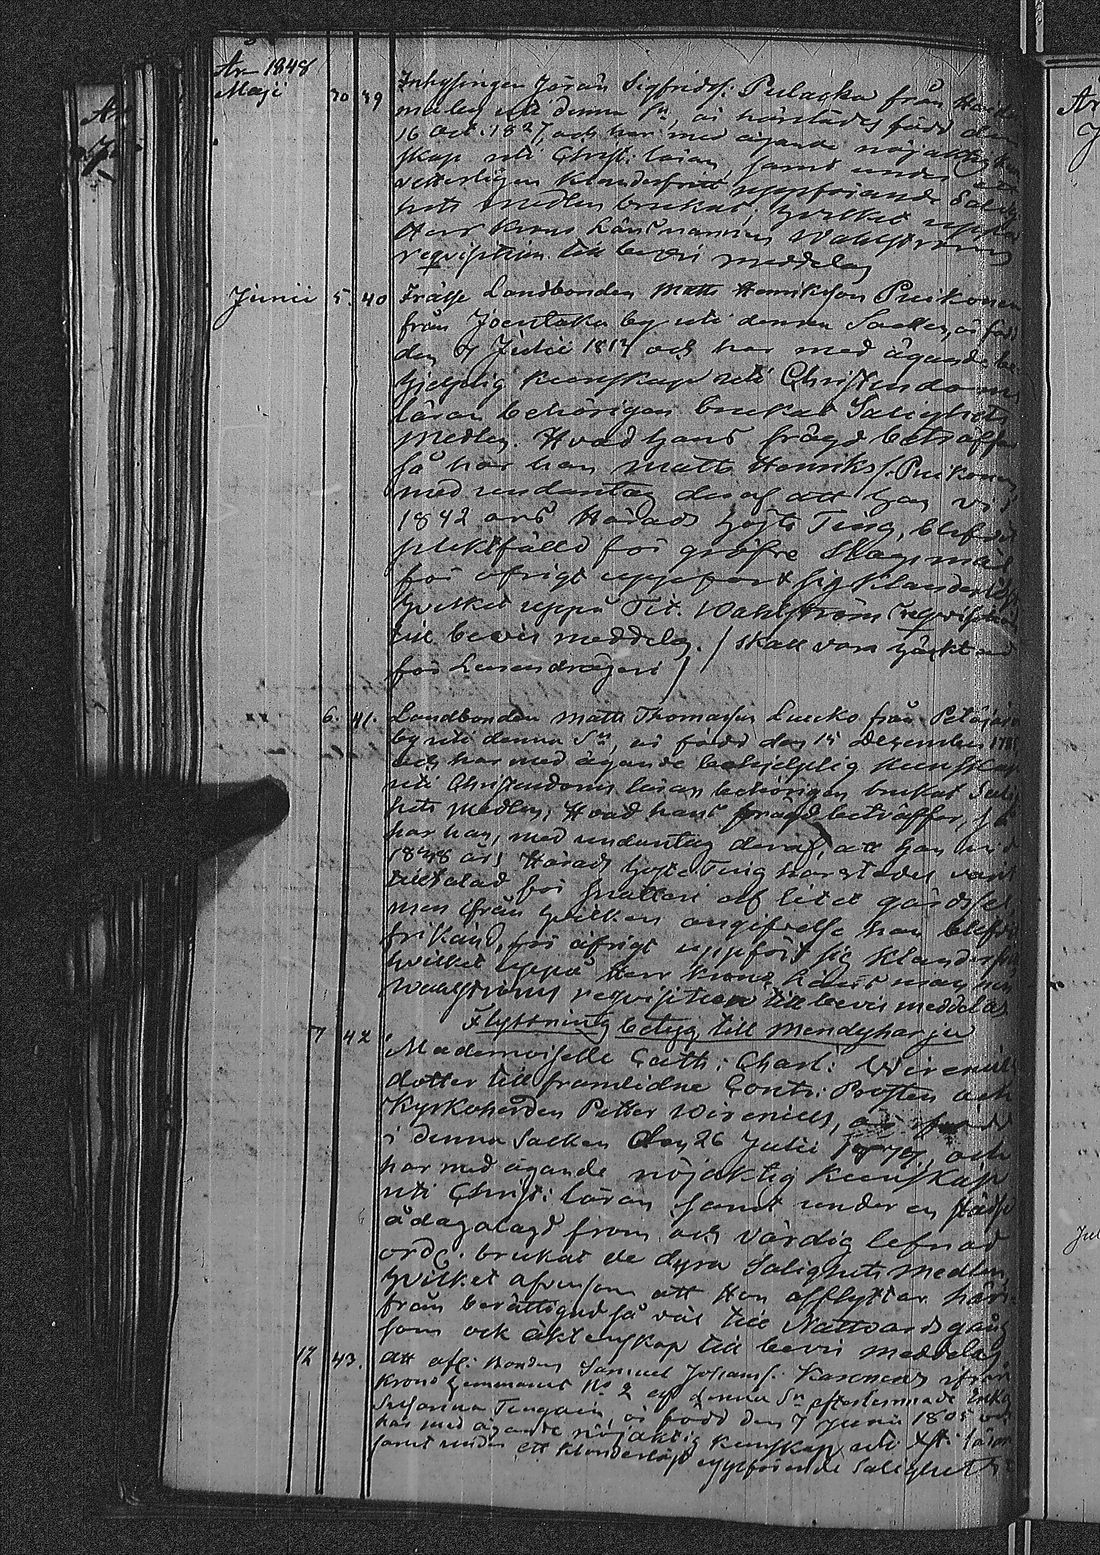 År 1848
Maji 30 39 Inhysingen Jöran Sigfrids: Pulacka från
uti denna Sn, är härstädes född den
16 Oct: 1827, och har med ägande nöjaktig
skap uti Christ: läran, samt under ett
vetterligen klanderfritt uppförande Salig
hets medlen brukat, hvilket uppå
Herr Krono Länsmannen Wahlströms
requisition till bevis meddelas
Junii 5. 40 Frälse Landbonden Matts Henriksson Puikonen
från Joentaka by uti denna Socken, är född
den 7 Julii 1817 och har med ägande be
hjelplig kunskap uti Christendoms
läran behörigen brukat Salighets
Medlen. Hvad hans frägd beträffar
så har han Matts Henrikss: Puikonen
med undantag deraf att han vid
1842 års Härads höste Ting, blifvit
pliktfälld för gröfre Slagsmål
för öfrigt uppfört sig klanderlöst
hvilket uppå Tit. Wahlström requisition
till bevis meddelas. / skall vara
för Lurendrägeri /
" " 6. 41. Landbonden Matts Thomasson Lucko från Petäjärvi
by uti denna Sn, är född den 15 December
och har med ägande behjelplig kunskap
uti Christendoms läran behörigen brukat Salig
hets medlen; Hvad hans frägd beträffar, så
har han, med undantag deraf, att han vid
1848 års Härads höste Ting härstädes varit
tilltalad för snatteri af litet gärdsel
men från hvilken angifvelse han blifvit
frikänd, för öfrigt uppfört sig klanderfritt
hvilket uppå Herr Krono Länsmannen
Wahlströms requisition till bevis meddelas
Flyttnings betyg till Mendyharju
7 42 Mademoiselle Cath: Charl: Wirenius
dotter till framlidne Contr: Prosten och
Kyrkoherden Petter Wirenius, är född
i denna Socken den 26 Julii 1779, och
har med ägande nöjaktig kunskap
uti Christ: läran samt under en städse
ådagalagd from och värdig lefnad
ord: brukat de dyra Salighets medlen
hvilket äfvensom att Hon afflyttar här
från berättigad så väl till Nattvards gång
som ock äktenskap till bevis meddelas
12 43. Att afl: Bonden Samuel Johanss: ifrån
Krono hemmanet No 2 af denna Sn efterlemnade Enka
Susanna Tengain, är född den 7 Junii 1805 och
har med ägande nöjaktig kunskap uti Xsti läran
samt under ett klanderlöst uppförande Salighets